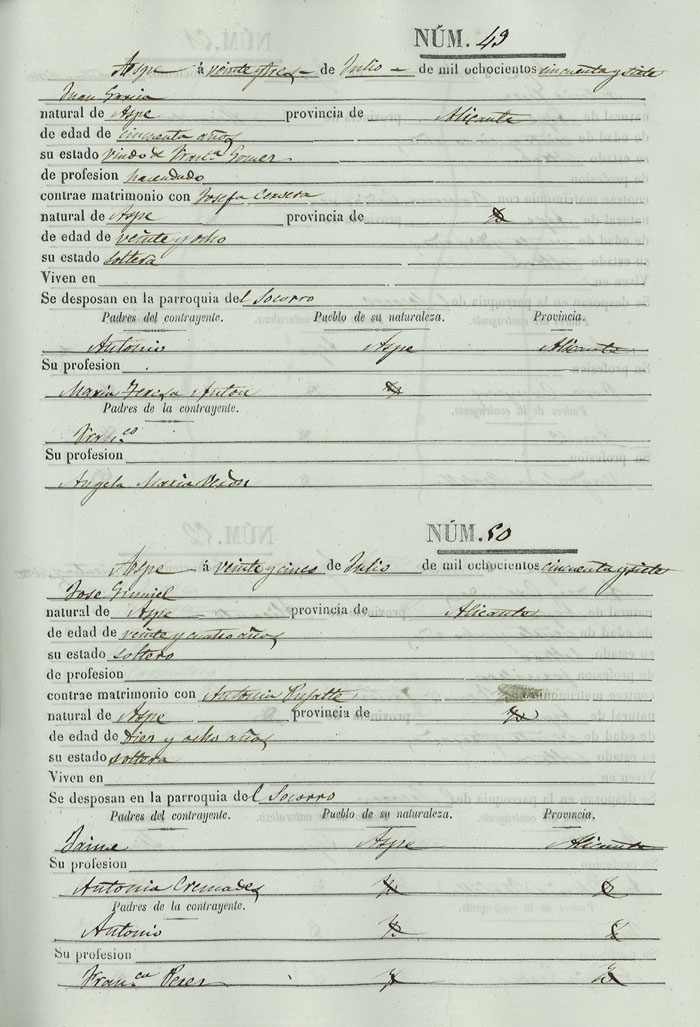 NÚM. 49
Aspe á veinte y tres de Julio de mil ochocientos cincuenta y siete
Juan Garcia
natural de Aspe provincia de Alicante
de edad de cincuenta años
su estado Viudo de Fran.ca Gomer
de profesion hacendado
contrae matrimonio con Josefa Cervera
natural de Aspe provincia de
de edad de veinte y ocho
su estado soltera
Viven en
Se desposan en la parroquia del Socorro
Padres del contrayente. Pueblo de su naturaleza. Provincia.
Antonio Aspe Alicante
Su profesion
Maria Teresa Anton
Padres de la contrayente.
Fran.co
Su profesion
Angela Maria
NÚM. 50
Aspe á veinte y cinco de Julio de mil ochocientos cincuenta y siete
Jose
natural de Aspe provincia de Alicante
de edad de veinte y cuatro años
su estado soltero
de profesion
contrae matrimonio con Antonia Pujalte
natural de Aspe provincia de
de edad de Dier y ocho años
su estado soltera
Viven en
Se desposan en la parroquia del Socorro
Padres del contrayente. Pueblo de su naturaleza. Provincia.
Jaime Aspe Alicante
Su profesion
Antonia Cremades
Padres de la contrayente.
Antonio
Su profesion
Fran.ca Perer